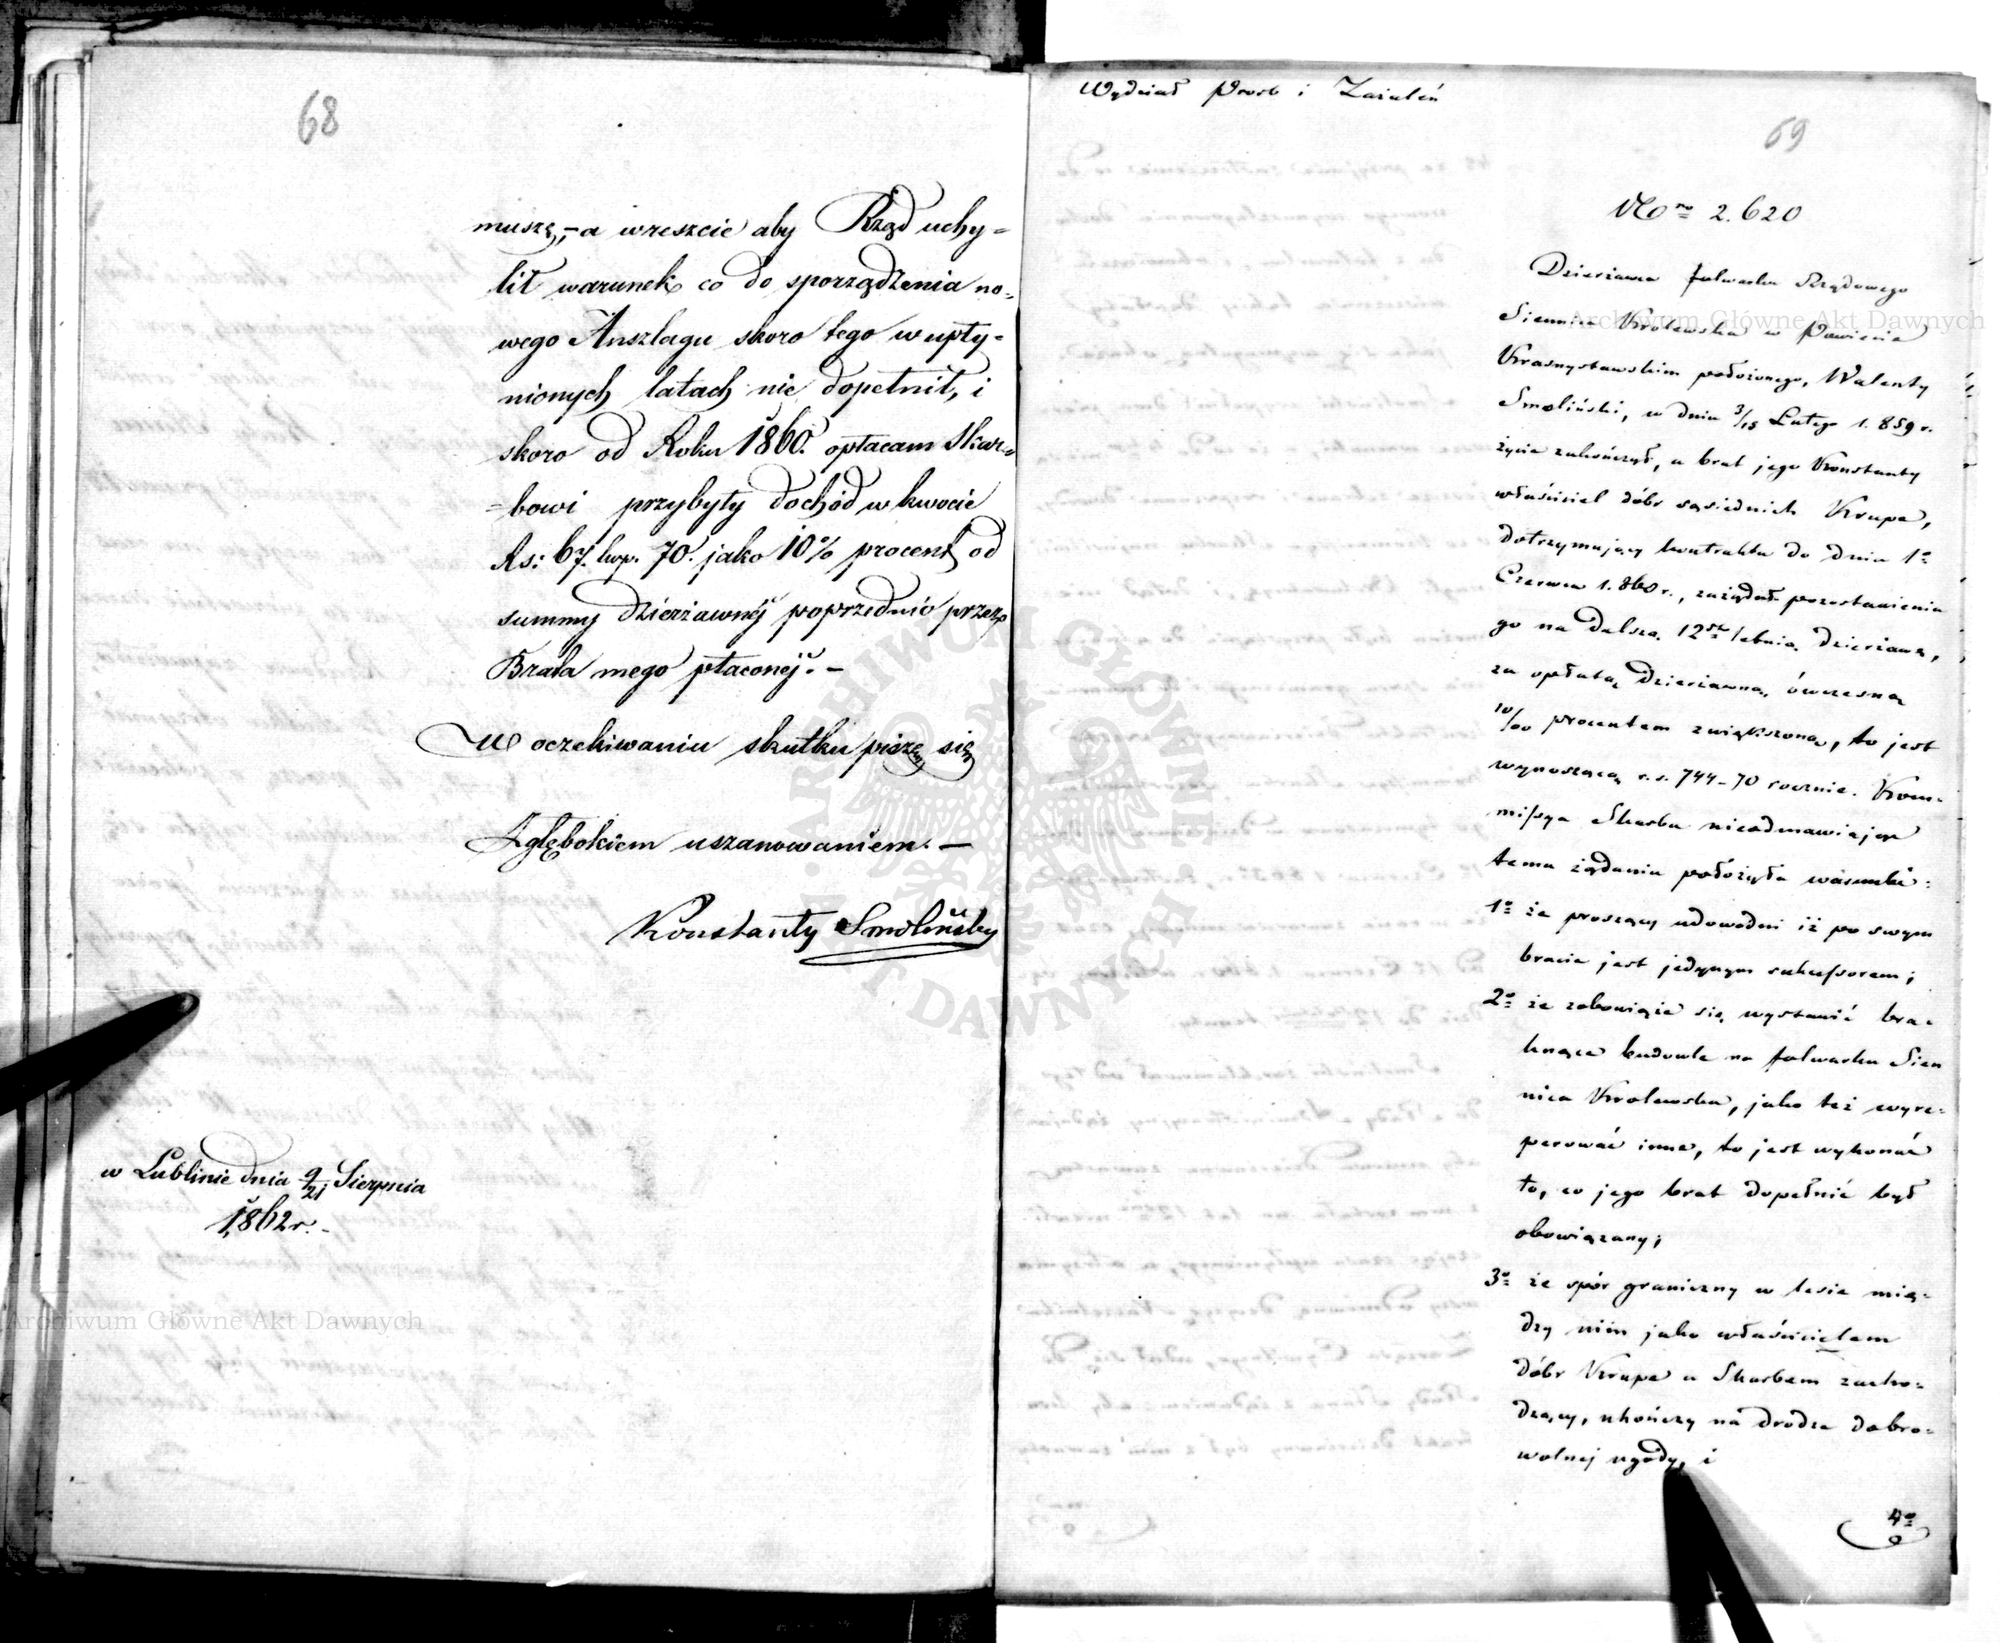 68
muszę,- a wreszcie aby Rząd uchy=
lił warunek co do sporządzenia no=
wego Anszlagu skoro tego w upły=
nionych latach nie dopełnił, i
skoro od Roku 1860. opłacam Skar=
=bowi przybyły dochód w kwocie
Rs: 67. kop. 70. jako 10% procent od
summy dzierżawnéj poprzednio przez
Brata mego płaconéj.-
W oczekiwaniu skutku piszę się
Z głębokiem uszanowaniem.-
Konstanty Smoliński
w Lublinie dnia 9/21 Sierpnia
1862 r.-
Wydział Prośb i Zażaleń
69
No 2.620
Dzierżawca folwarku Rządowego
Siennica Krolewska w Powiecie
Krasnystawskim położonego, Walenty
Smoliński, w dniu 3/15 Lutego 1.859 r.
życie zakończył, a brat jego Konstanty
właściciel dóbr sąsiednich Krupe,
dotrzymujący kontraktu do dnia 1o
Czerwca 1.860 r., zażądał pozostawienia
go na dalszą 12sto letnią dzierżawę,
za opłatą dzierżawną ówczesną
10/00 procentem zwiększoną, to jest
wynoszącą r.s. 744-70 rocznie. Kom-
missya Skarbu nieodmawiając
temu żądaniu położyła warunki:
1o że proszący udowodni iż po swym
bracie jest jedynym sukcessorem;
2o że zobowiąże się wystawić bra-
knące budowle na folwarku Sien
nica Krolewska, jako też wyre-
perować inne, to jest wykonać
to, co jego brat dopełnić był
obowiązany;
3o że spór graniczny w lesie mię-
dzy nim jako właścicielem
dóbr Krupe a Skarbem zacho-
dzący, ukończy na drodze dobro-
wolnej ugody, i
4o
Archiwum Główne Akt Dawnych
Archiwum Główne Akt Dawnych
ARCHIWUM GŁÓWNE AKT DAWNYCH